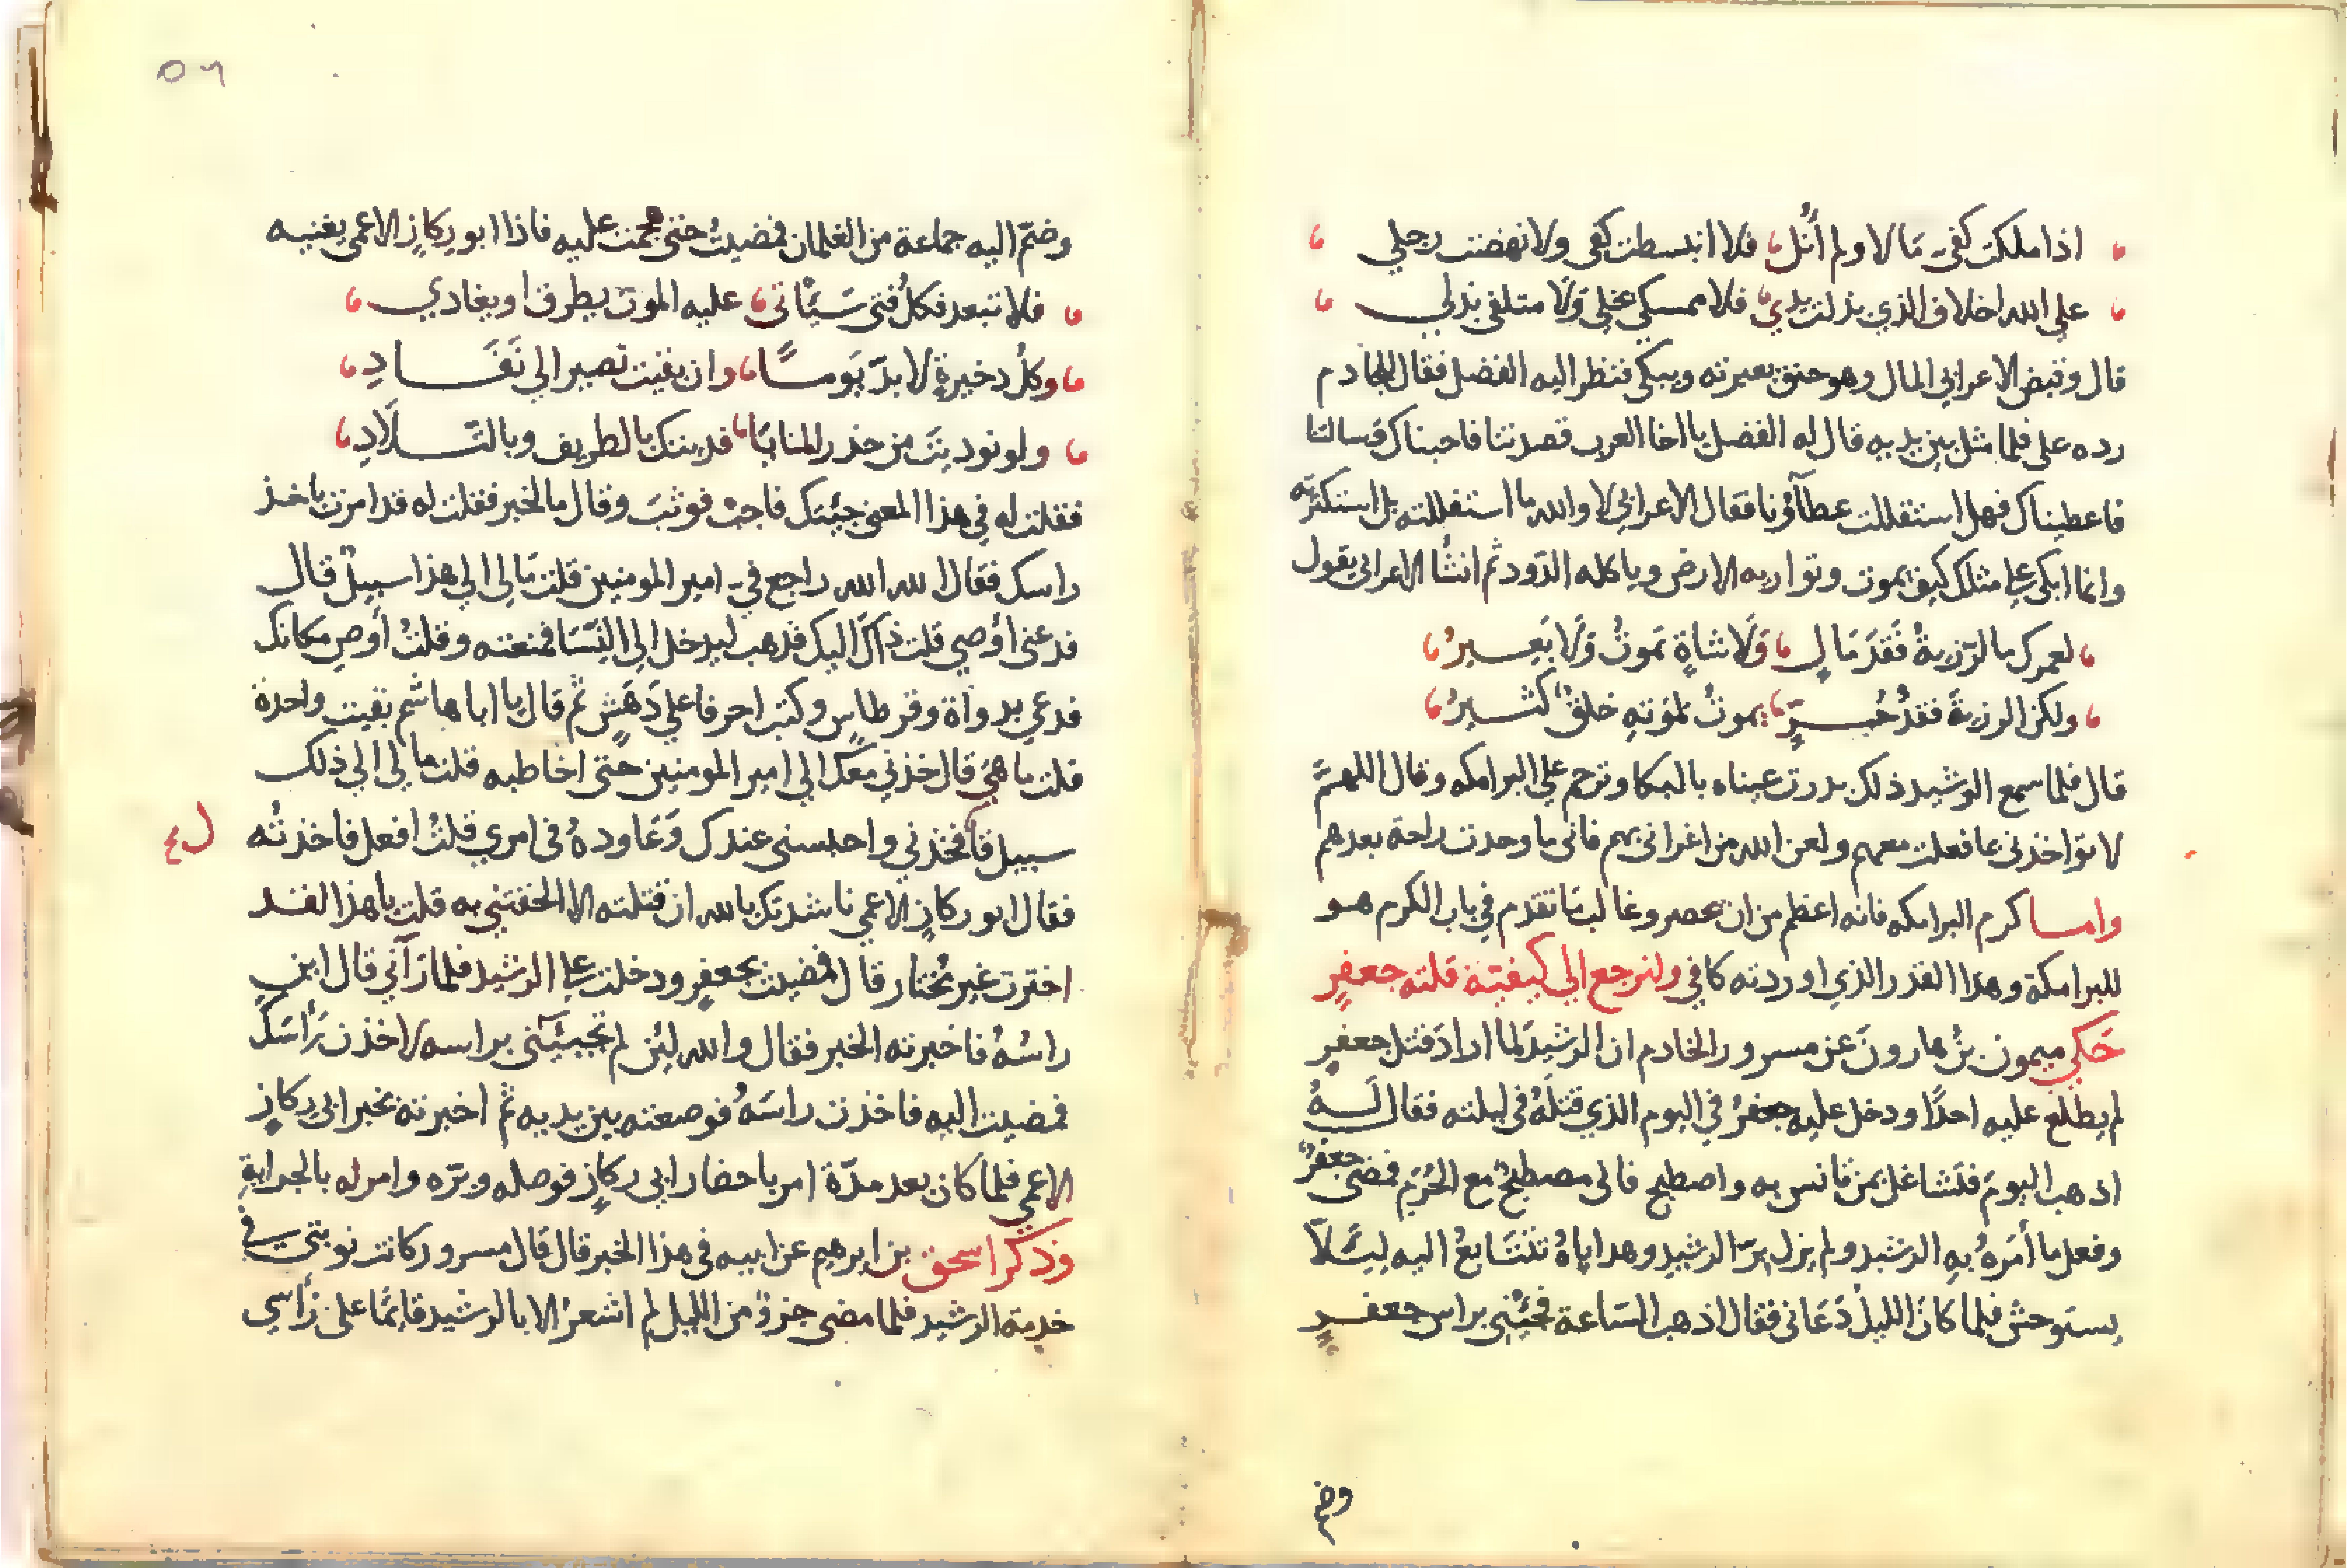 اذا ملكت كفي مَالا ولم أُنل، فلا انبسطت كفي ولا نهضت رجلي
علي الله اخلاف الذي بذلت يدي، فلا ممسكي بخلي وَلَا متلفي بذلي
قال وقبض الاعرابي المال وهو حنق بعبرته ويبكي فنظر اليه الفضل فقال للخادم
رده علي فلما مثل بين يديه قال له الفضل يا اخا العرب قصدتنا فاجبناك وسالتنا
فاعطيناك فهل استقللت عطآؤنا فقال الاعرابي لا والله ما استقللته بل استكثرته
وانما ابكي علي مثلك كيف يموت وتواريه الارض وياكله الدَود ثم انشأ الاعرابي يقول
لعمرك ما الرّزية فَقَدَ مَالٍ، وَلَا شاةٍ تموتُ وَلَا بَعِيرُ
ولكن الرزيةَ فقدُ حُرٍّ، يموتُ لموَتهِ خلقٌ كثيرُ
قال فلما سمع الرشيد ذلك بدرت عيناه بالبكا وترحم علي البرامكه وقال اللهمَّ
لا تواخذني بما فعلت معهم ولعن الله من اغراني بهم فاني ما وجدت راحة بعدهم
واما كرم البرامكه فانه اعظم من ان يحصر وغالب مَا تقدم في باب الكرم هو
للبرامكة وهذا القدر الذي اوردته كافي ولنرجع الي كيفيّة قتلة جعفرٍ
حَكي ميمون بنُ هارونَ عن مسرور الخادم ان الرشيدَ لما ارادَ قتل جعفرٍ
لم يطلع عليه احدًا ودخل عليه جعفرُ في اليوم الذي قتلَهُ في ليلته فقال لَهُ
اذهب اليومَ فتشاغل بمن تانس به واصطبح فاني مصطبحٌ مع الحُرَمِ فمضى جعفرٌ
وفعل ما أمَرهُ بهِ الرشيد ولم يزل برّ الرشيدِ وهداياهُ تتتَابعُ اليه لِيَئلّا
يستوحش فلما كانَ الليلُ دَعَاني فقال اذهب السّاعة فجئني براس جعفرٍ
وضم
٥٦
وضمّ اليه جماعة من الغلمان فمضيتُ حتى هجمت عليه فاذا ابو رِكازٍ الاعمي يغنيه
فلا تبعد فكلُ فتى سَيَأتي، عليه الموت يطرق او يغادي
وكلُ دخيرةٍ لا بدّ يَوما، وان بقيت تصير الي نَفَادِ
ولو فوديتَ من حذر المنايَا، فديتك بالطريف وبالتّلَادِ
فقلت له في هذا المعنى جيئتك فاجب فوثبَ وقال ما الخبر فقلت له قد امرت باخذ
راسك فقال الله الله راجع فيّ امير المومنين قلت مَا لي الي هذا سبيلٌ قال
فدعني اوُصي قلت ذاكَ اليك فذهب ليدخل الي النّسَا فمنعته وقلتُ أوصِ مكانك
فدعي بدواة وقرطاسٍ وكتب احرفا علي دَهَشٍ ثم قال يا ابا هاشم بقيت واحدة
قلت ما هي قال خذني معكَ الي امير المومنين حتى اخاطبه قلت ما لي الي ذلك
سبيل قال فخذني واحبسني عندك وَعَاودهُ في امري قلتُ افعل فاخذتُه
فقال ابو ركازٍ الاعمي ناشدتك بالله ان قتلته الا الحقتنَي به قلت يا هذا لقد
اخترت غير مُختار قال فمضيت بجعفرٍ ودخلت علي الرشيد فلما رَآني قال اين
راسُهُ فاخبرته الخبر فقال والله لئن لم تجيئَني براسه لاخذن رَأسَكَ
فمضيت اليه فاخذت راسَهُ فوضعته بين يديه ثم اخبرته بخبر ابي رِكازٍ
الاعمي فلما كان بعد مدّة امر باحضار ابي ركازٍ فوصله وبرّه وامر له بالجرايةِ
وذكر اسحق بن ابرهيم عن ابيه في هذا الخبر قال قال مسرور كانت نوبتي في
خدمة الرشيد فلما مضى جزؤ من الليل لم اشعرُ الا بالرشيد قايمًا على رَأسي